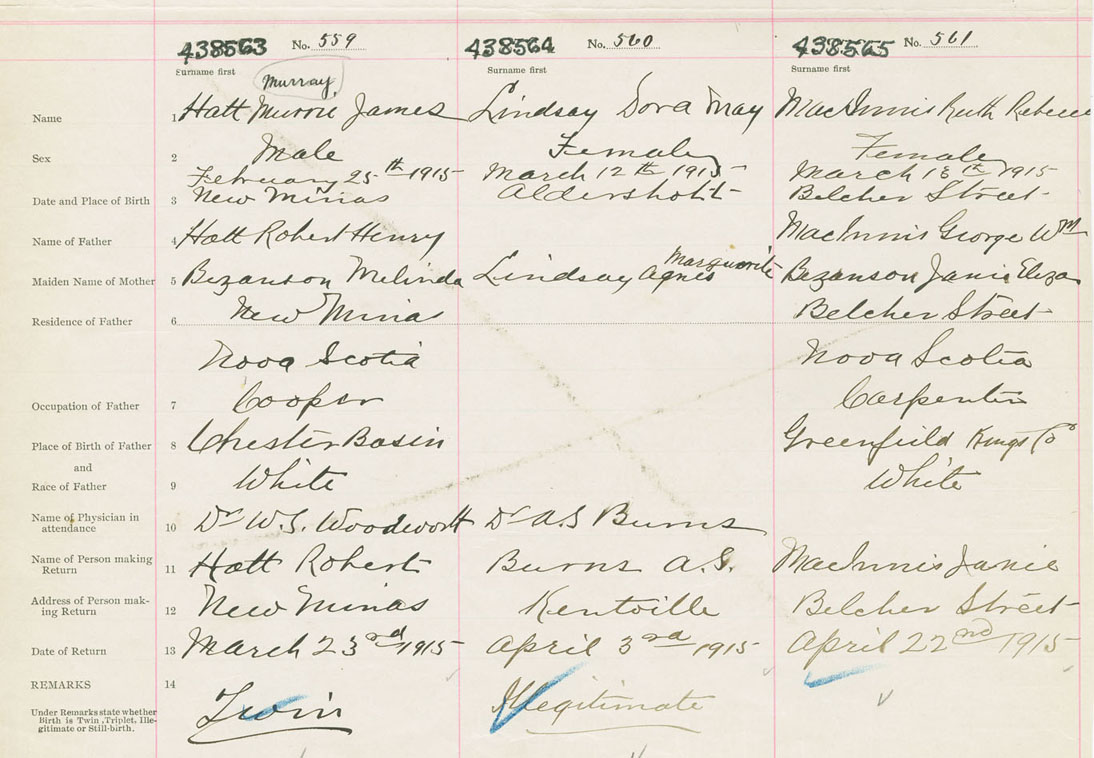 438563 No. 559 438564 No. 560 438565 No. 561
Surname first Surname first Surname first
Murray
Name 1 Hatt Murrie James Lindsay Dora May MacInnis Ruth Rebecca
Sex 2 Male Female Female
February 25th 1915 March 12th 1915 March 18th 1915
Date and Place of Birth 3 New Minas Aldershott Belcher Street
Name of Father 4 Hatt Robert Henry MacInnis George Wm
Marguerite
Maiden Name of Mother 5 Bezanson Melinda Lindsay Agnes Bezanson Janie Eliza
Residence of Father 6 New Minas Belcher Street
Nova Scotia Nova Scotia
Occupation of Father 7 Cooper Carpenter
Place of Birth of Father 8 Chester Basin Greenfield Kings Co
and
Race of Father 9 White White
Name of Physician in
attendance 10 Dr W.S. Woodworth Dr A.S Burns
Name of Person making
Return 11 Hatt Robert Burns A.S. MacInnis Janie
Address of Person mak-
ing Return 12 New Minas Kentville Belcher Street
Date of Return 13 March 23rd 1915 April 3rd 1915 April 22nd 1915
REMARKS 14
Under Remarks state whether
Birth is Twin, Triplet, Ille-
gitimate or Still-birth.
Twin Illegitimate